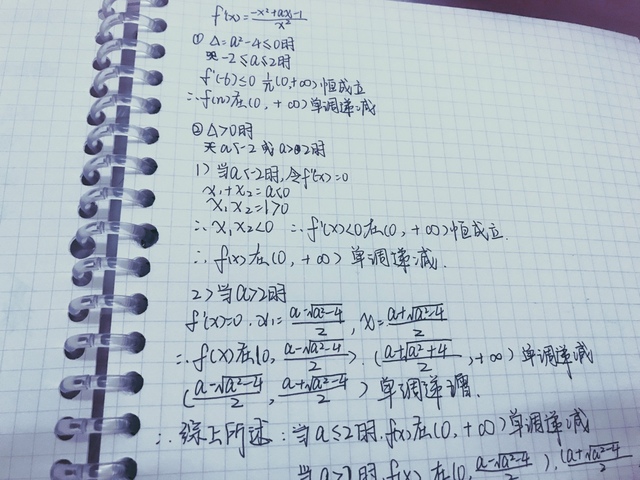 f'(x)=\frac{-x²+ax-1}{x²}
① Δ=a²-4≤0时
-2≤a≤2时
f'(x)≤0 在(0,+∞)恒成立
∴f(x)在(0,+∞)单调递减
② Δ>0时
a<-2 或 a>2时
1) 当a<-2时,令f'(x)=0
x₁+x₂=a<0
x₁x₂=1>0
∴x₁x₂<0 ∴f'(x)<0在(0,+∞)恒成立.
∴f(x)在(0,+∞)单调递减.
2) 当a>2时
f'(x)=0. x₁=\frac{a-\sqrt{a²-4}}{2}, x=\frac{a+\sqrt{a²-4}}{2}
∴f(x)在(0,\frac{a-\sqrt{a²-4}}{2}).(\frac{a+\sqrt{a²+4}}{2},+∞)单调递减
(\frac{a-\sqrt{a²-4}}{2},\frac{a+\sqrt{a²-4}}{2})单调递增.
∴综上所述:当a≤2时.f(x)在(0,+∞)单调递减
当a>2时.f(x)在(0,\frac{a-\sqrt{a²-4}}{2}).(\frac{a+\sqrt{a²-4}}{2}